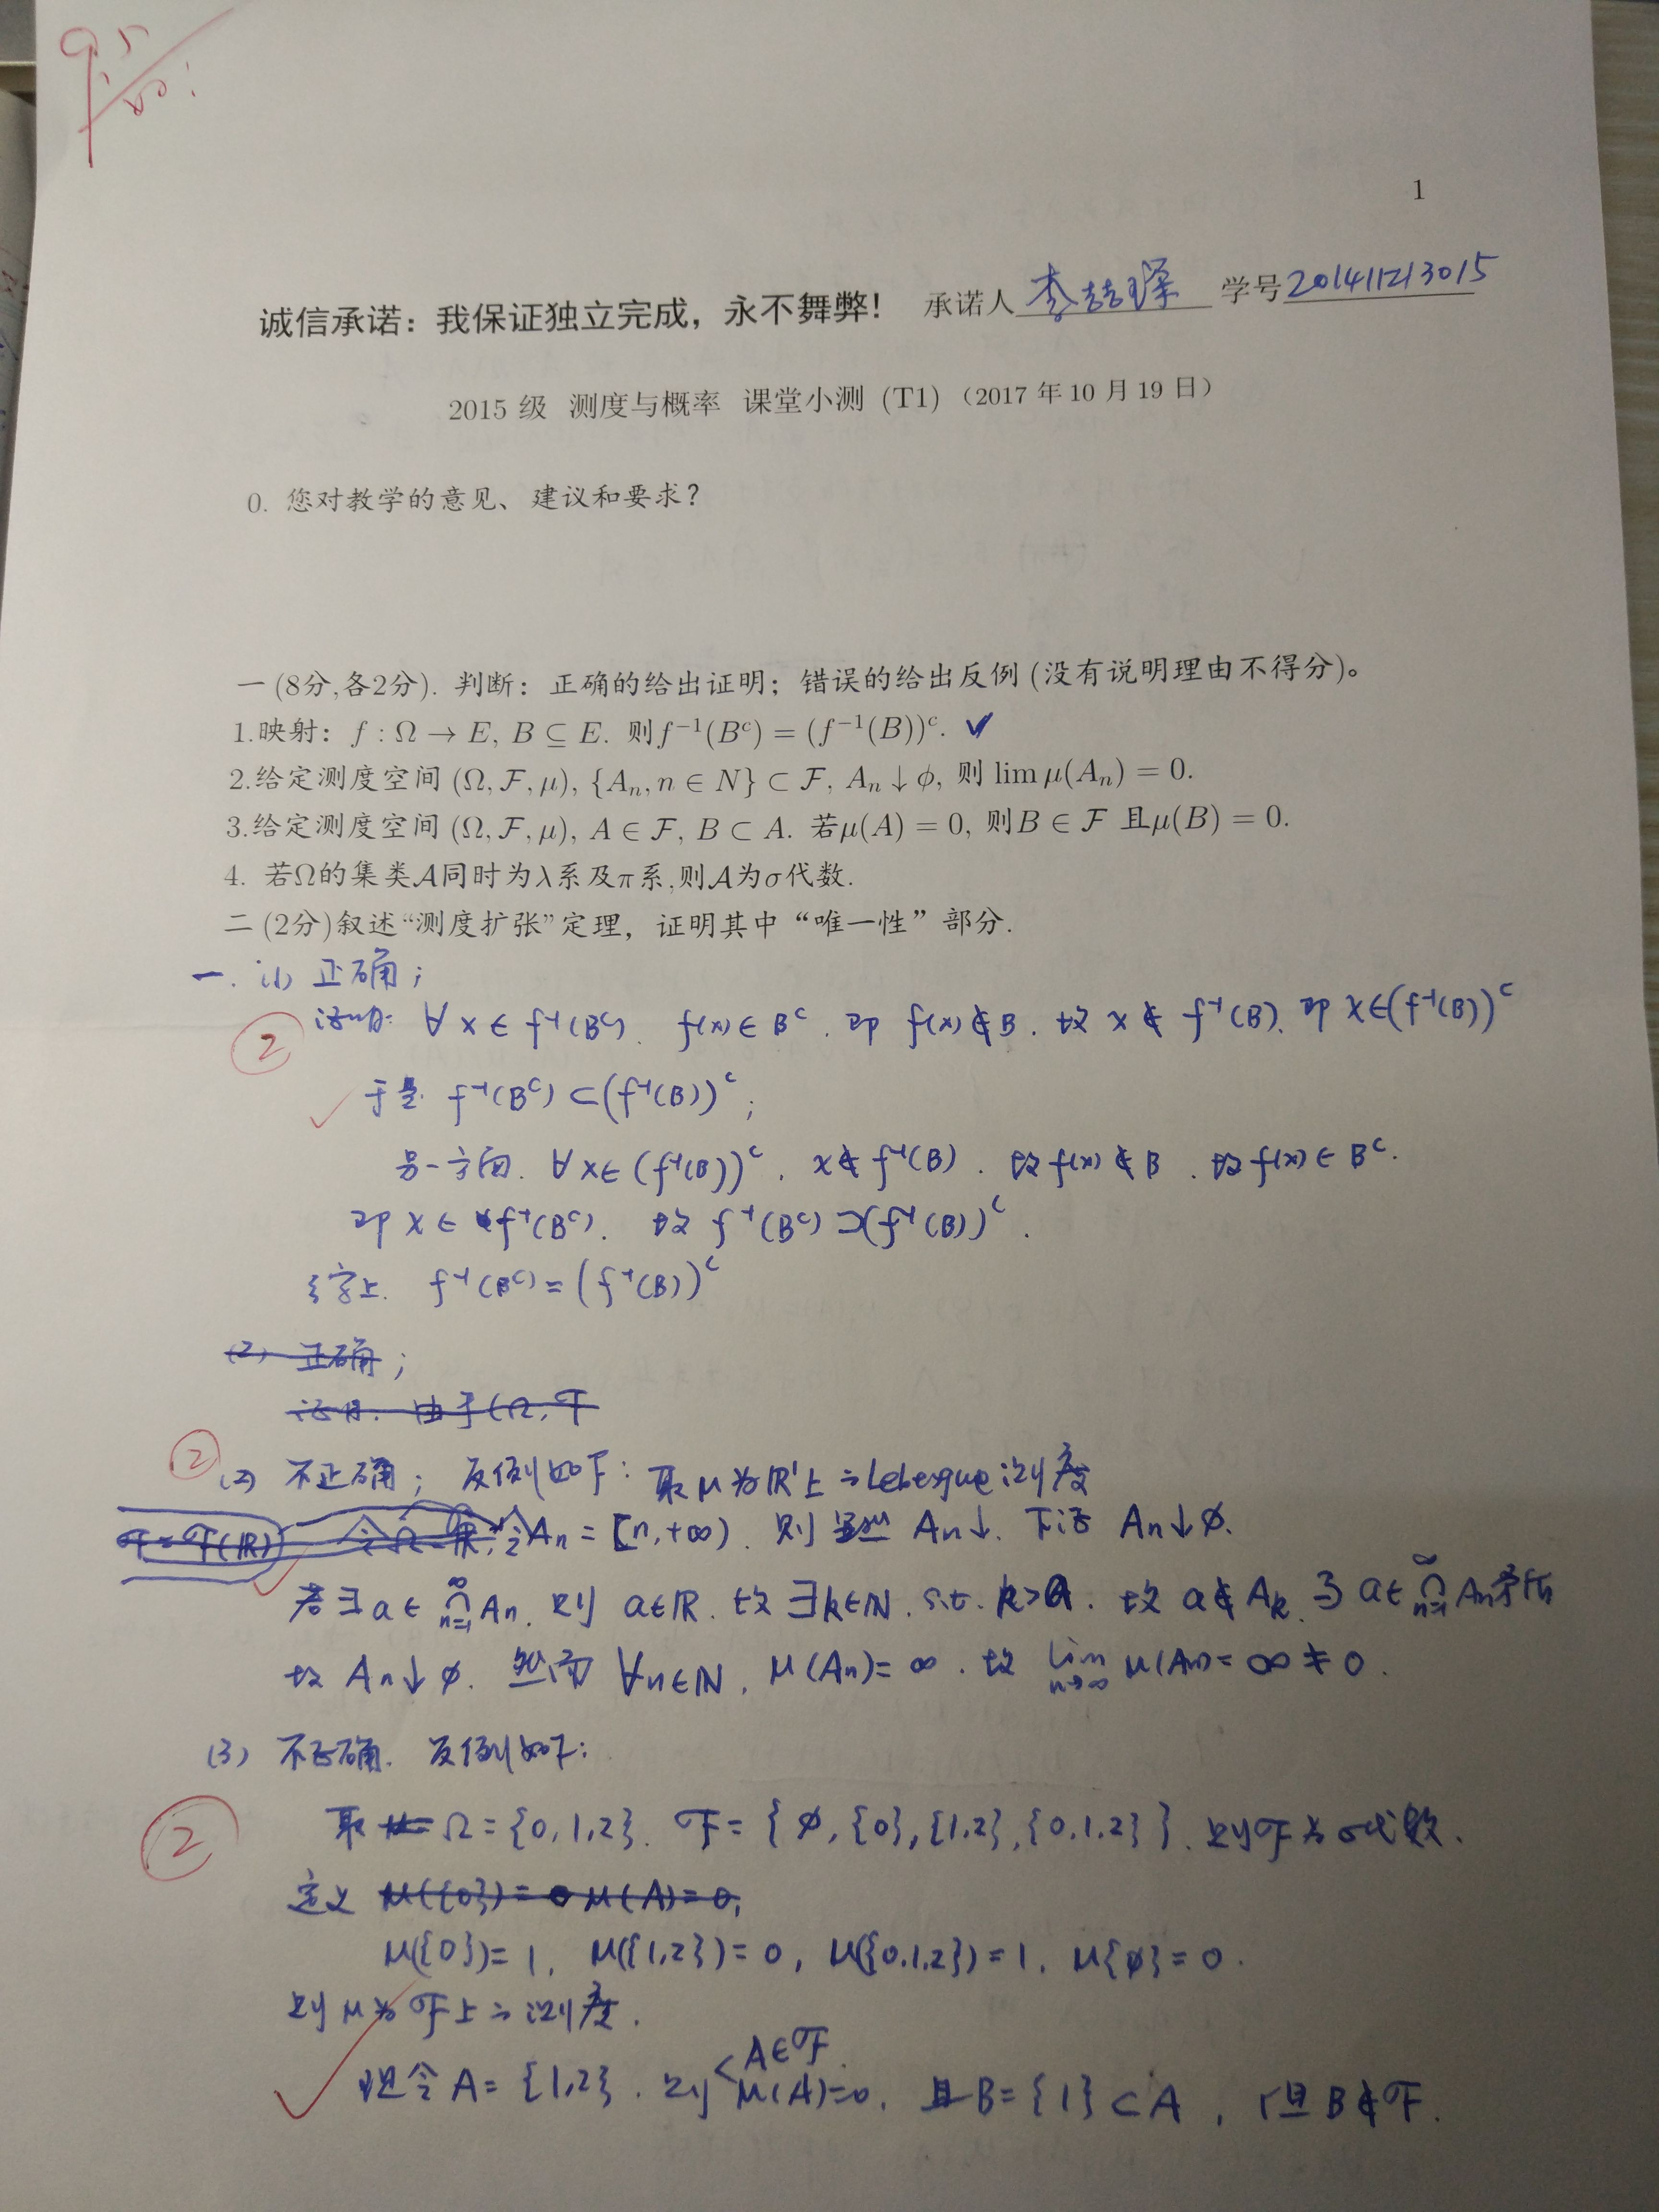 9.5
1
诚信承诺：我保证独立完成，永不舞弊！ 承诺人 李喆琛 学号 201411213015
2015 级 测度与概率 课堂小测 (T1)（2017 年 10 月 19 日）
0. 您对教学的意见、建议和要求？
一 (8分,各2分). 判断：正确的给出证明；错误的给出反例 (没有说明理由不得分)。
1.映射：f : Ω → E, B ⊆ E. 则f⁻¹(Bᶜ) = (f⁻¹(B))ᶜ. ✓
2.给定测度空间 (Ω, F, μ), {Aₙ, n ∈ N} ⊂ F, Aₙ ↓ ϕ, 则 lim μ(Aₙ) = 0.
3.给定测度空间 (Ω, F, μ), A ∈ F, B ⊂ A. 若μ(A) = 0, 则B ∈ F 且μ(B) = 0.
4. 若Ω的集类A同时为λ系及π系,则A为σ代数.
二 (2分)叙述“测度扩张”定理，证明其中“唯一性”部分.
一. (1) 正确；
② 证明: ∀ x ∈ f⁻¹(Bᶜ). f(x) ∈ Bᶜ. 即 f(x) ∉ B. 故 x ∉ f⁻¹(B). 即 x∈(f⁻¹(B))ᶜ
于是 f⁻¹(Bᶜ) ⊂ (f⁻¹(B))ᶜ;
另一方面. ∀ x∈ (f⁻¹(B))ᶜ, x ∉ f⁻¹(B). 故f(x) ∉ B. 故f(x) ∈ Bᶜ.
即 x ∈ f⁻¹(Bᶜ). 故 f⁻¹(Bᶜ) ⊃ (f⁻¹(B))ᶜ.
综上. f⁻¹(Bᶜ) = (f⁻¹(B))ᶜ
(2) 正确；
证明. 由于(Ω, F
② (2) 不正确；反例如下: 取μ为ℝ¹上之Lebesgue测度
F = F(ℝ) 令Ω=ℝ, 令Aₙ = [n, +∞). 则显然 Aₙ↓. 下证 Aₙ↓∅.
若∃a ∈ ⋂ₙ₌₁^∞ Aₙ. 则 a∈ℝ. 故∃k∈ℕ. s.t. k>a. 故 a∉Aₖ. 与 a∈⋂ₙ₌₁^∞ Aₙ矛盾
故 Aₙ↓∅. 然而 ∀n∈ℕ, μ(Aₙ)= ∞. 故 lim n→∞ μ(Aₙ)= ∞ ≠ 0.
(3) 不正确. 反例如下:
② 取 Ω={0,1,2}. F={∅,{0},{1,2},{0,1,2}}. 则F为σ代数.
定义 μ({0})= 0 μ(A)=0,
μ({0})= 1, μ({1,2})= 0, μ({0,1,2})=1, μ{∅}=0.
则μ为F上之测度.
但令A={1,2}. 则 A∈F. μ(A)=0. 且B={1}⊂A, 但B∉F.